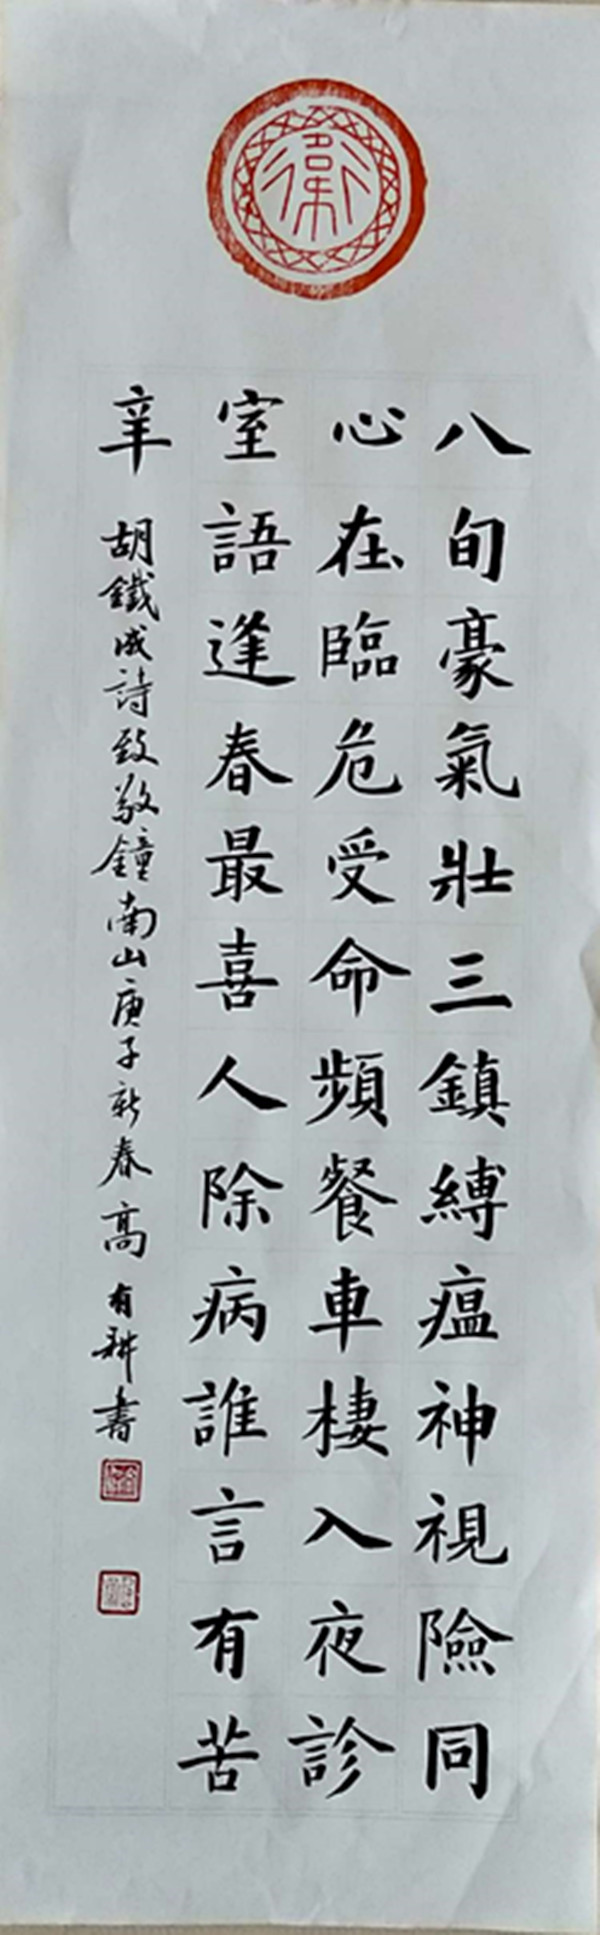 八旬豪氣壯三鎮縛瘟神視險同
心在臨危受命頻餐車棲入夜診
室語逢春最喜人除病誰言有苦
辛
胡鐵成詩致敬鐘南山庚子新春高有耕書